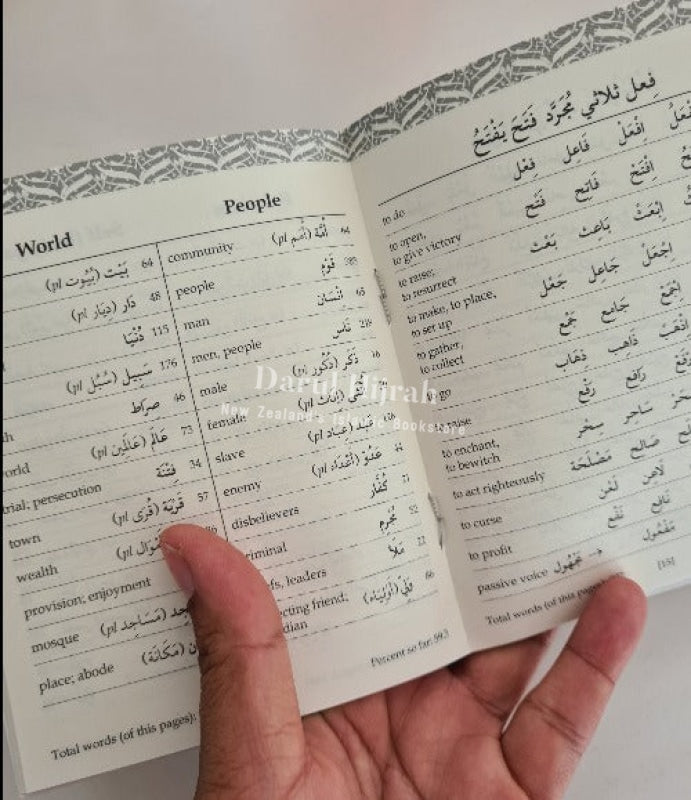 World
بَيْت (بُيُوت pl) 64
دَار (دِيَار pl) 48
دُنْيَا 115
سَبِيل (سُبُل pl) 176
صِرَاط 46
عَالَم (عَالَمِين pl) 73
trial; persecution فِتْنَة 34
town قَرْيَة (قُرَى pl) 57
wealth
provision; enjoyment
mosque (مَسَاجِد pl)
place; abode (مَكَانَة)
Total words (of this pages):
People
community أُمَّة (أُمَم pl) 64
people قَوْم 383
man اِنْسَان 65
men, people نَاس
male ذَكَر (ذُكُور pl) 18
female أُنْثَى (إِنَاث pl)
slave عَبْد (عِبَاد pl)
enemy عَدُوّ (أَعْدَاء pl)
disbelievers كُفَّار 21
مُجْرِم 52
leaders مَلَأ 22
friend; وَلِيّ (أَوْلِيَاء) 86
Percent so far: 59.3
فِعل ثلاثي مُجَرَّد فَتَحَ يَفْتَحُ
to do فِعْل فَاعِل اِفْعَلْ
to open, فَتْح فَاتِح اِفْتَحْ
to give victory
to raise; بَعْث بَاعِث اِبْعَثْ
to resurrect
to make, to place, جَعْل جَاعِل اِجْعَلْ
to set up
to gather, جَمْع جَامِع اِجْمَعْ
to collect
to go ذِهَاب ذَاهِب اِذْهَبْ
to raise رَفْع رَافِع
to enchant, سِحْر سَاحِر
to bewitch
to act righteously مَصْلَحَة صَالِح
to curse لَعْن لَاعِن
to profit نَفْع نَافِع
passive voice مَجْهُول → مَفْعُول
Total words (of this pages):
[15]
Darul Hijrah
New Zealand's Islamic Bookstore